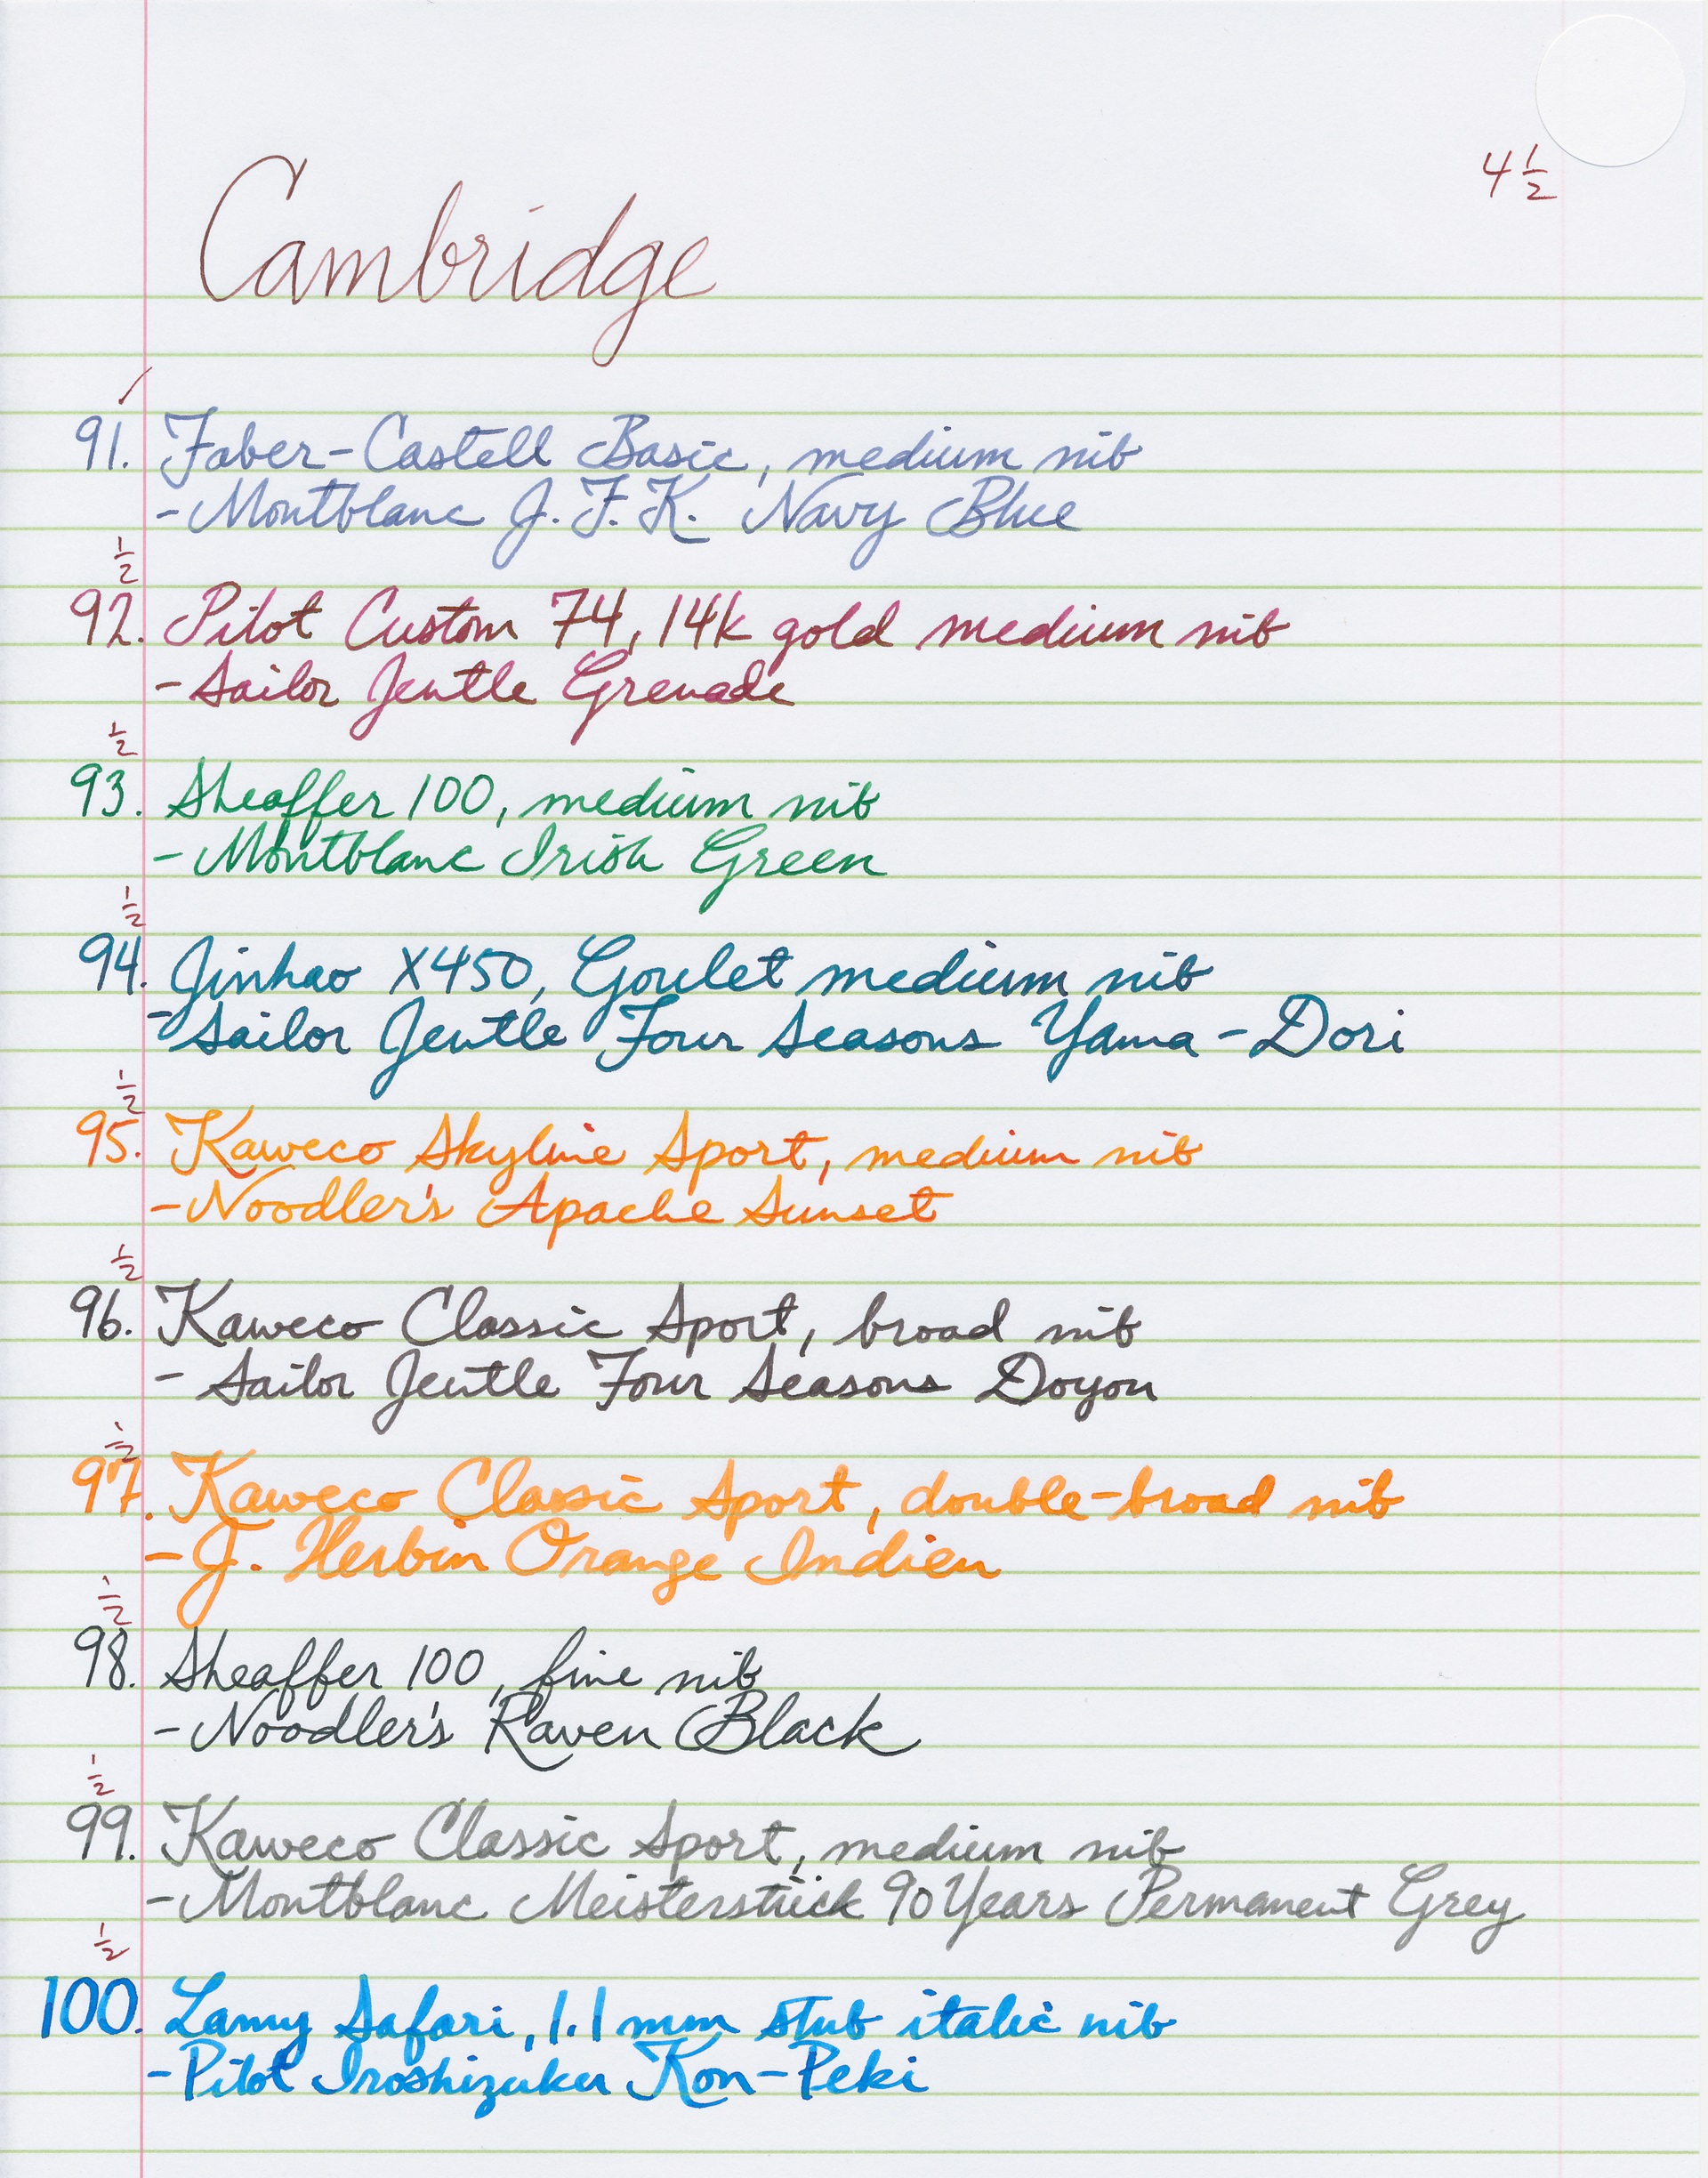 4 1/2
Cambridge
✓
91. Faber-Castell Basic, medium nib
- Montblanc J.F.K. Navy Blue
1/2
92. Pilot Custom 74, 14k gold medium nib
- Sailor Jentle Grenade
1/2
93. Sheaffer 100, medium nib
- Montblanc Irish Green
1/2
94. Jinhao X450, Goulet medium nib
- Sailor Jentle Four Seasons Yama-Dori
1/2
95. Kaweco Skyline Sport, medium nib
- Noodler's Apache Sunset
1/2
96. Kaweco Classic Sport, broad nib
- Sailor Jentle Four Seasons Doyou
1/2
97. Kaweco Classic Sport, double-broad nib
- J. Herbin Orange Indien
1/2
98. Sheaffer 100, fine nib
- Noodler's Raven Black
1/2
99. Kaweco Classic Sport, medium nib
- Montblanc Meisterstück 90 Years Permanent Grey
1/2
100. Lamy Safari, 1.1 mm stub italic nib
- Pilot Iroshizuku Kon-Peki